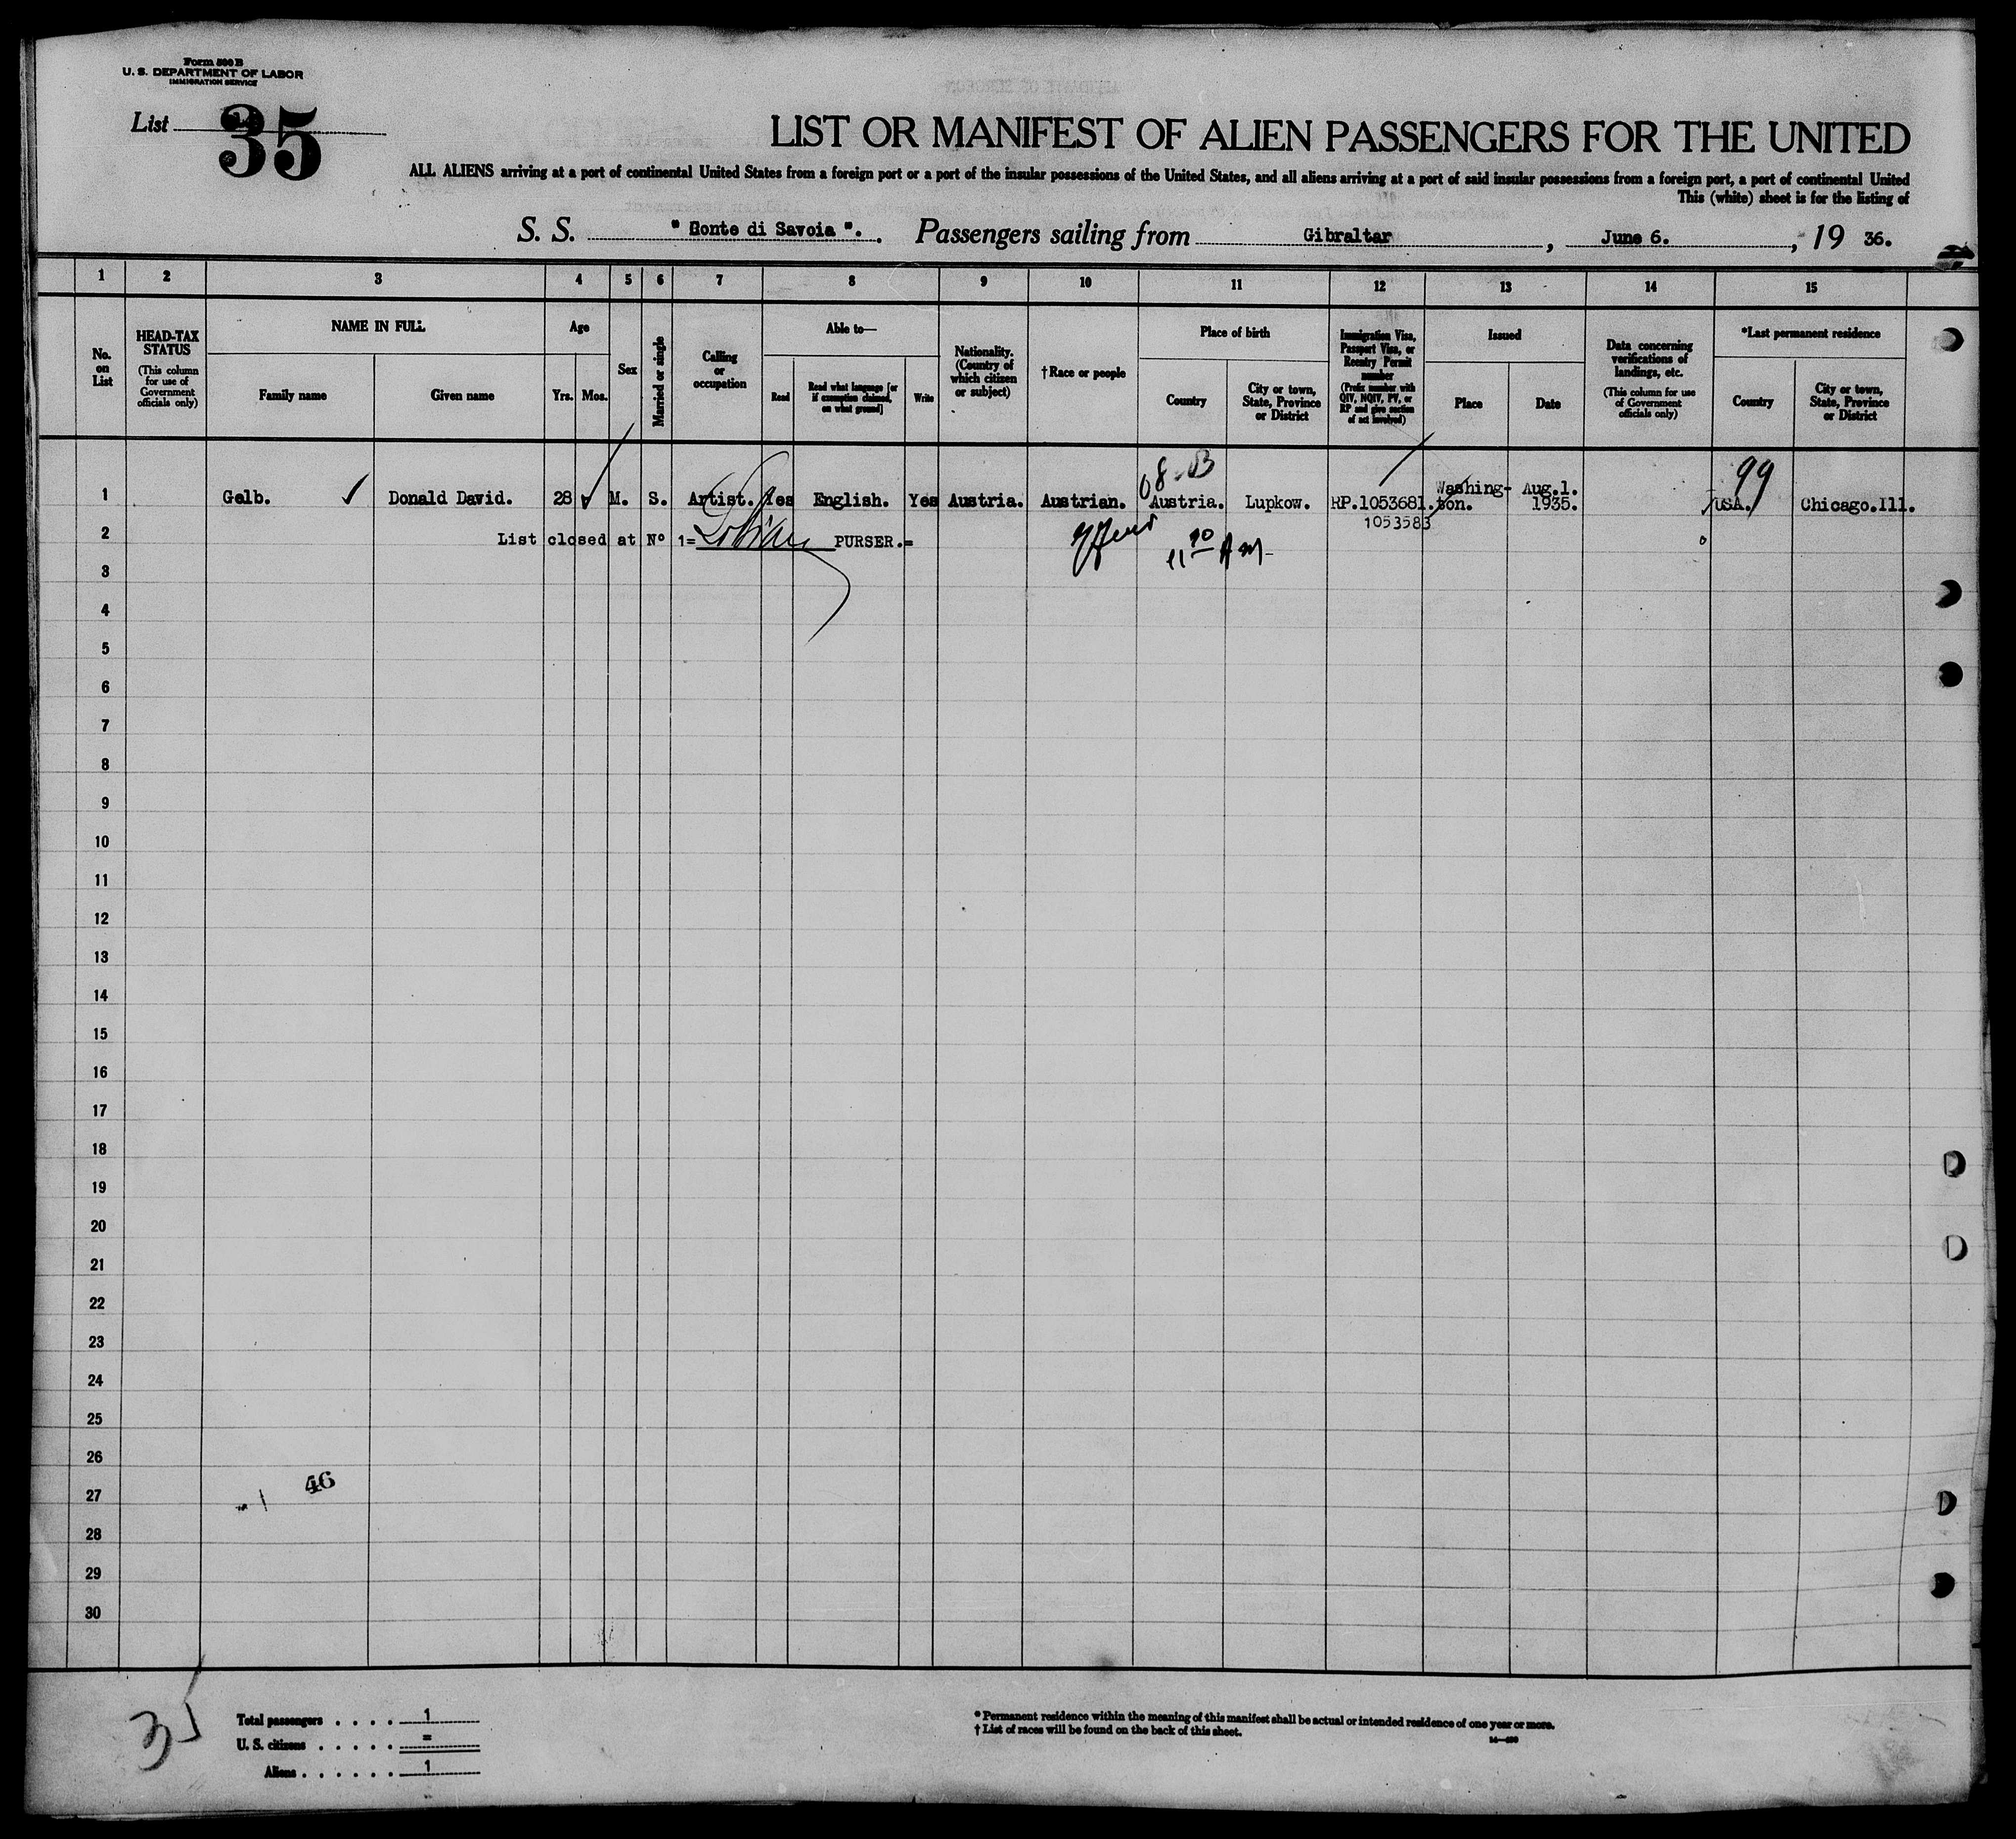 Form 500 B
U. S. DEPARTMENT OF LABOR
IMMIGRATION SERVICE
List 35
LIST OR MANIFEST OF ALIEN PASSENGERS FOR THE UNITED
ALL ALIENS arriving at a port of continental United States from a foreign port or a port of the insular possessions of the United States, and all aliens arriving at a port of said insular possessions from a foreign port, a port of continental United
This (white) sheet is for the listing of
S. S. " Conte di Savoia ". Passengers sailing from Gibraltar , June 6. , 19 36.
1 2 3 4 5 6 7 8 9 10 11 12 13 14 15
No. on List
HEAD-TAX STATUS
(This column for use of Government officials only)
NAME IN FULL
Family name
Given name
Age
Yrs. Mos.
Sex
Married or single
Calling or occupation
Able to—
Read
Read what language [or if exemption claimed, on what ground]
Write
Nationality. (Country of which citizen or subject)
†Race or people
Place of birth
Country
City or town, State, Province or District
Immigration Visa, Passport Visa, or Reentry Permit number
(Prefix number with QIV, NQIV, PV, or RP and give section of act involved)
Issued
Place
Date
Data concerning verifications of landings, etc.
(This column for use of Government officials only)
*Last permanent residence
Country
City or town, State, Province or District
08-03
99
1 Gelb. ✓ Donald David. 28 M. S. Artist. Yes English. Yes Austria. Austrian. Austria. Lupkow. RP.1053681. Washington. Aug.1. 1935. USA. Chicago.Ill.
1053583
2 List closed at Nº 1= PURSER.=
11 AM
3
4
5
6
7
8
9
10
11
12
13
14
15
16
17
18
19
20
21
22
23
24
25
26
46
27
28
29
30
35
Total passengers . . . . 1
U. S. citizens . . . . . =
Aliens . . . . . . 1
* Permanent residence within the meaning of this manifest shall be actual or intended residence of one year or more.
† List of races will be found on the back of this sheet.